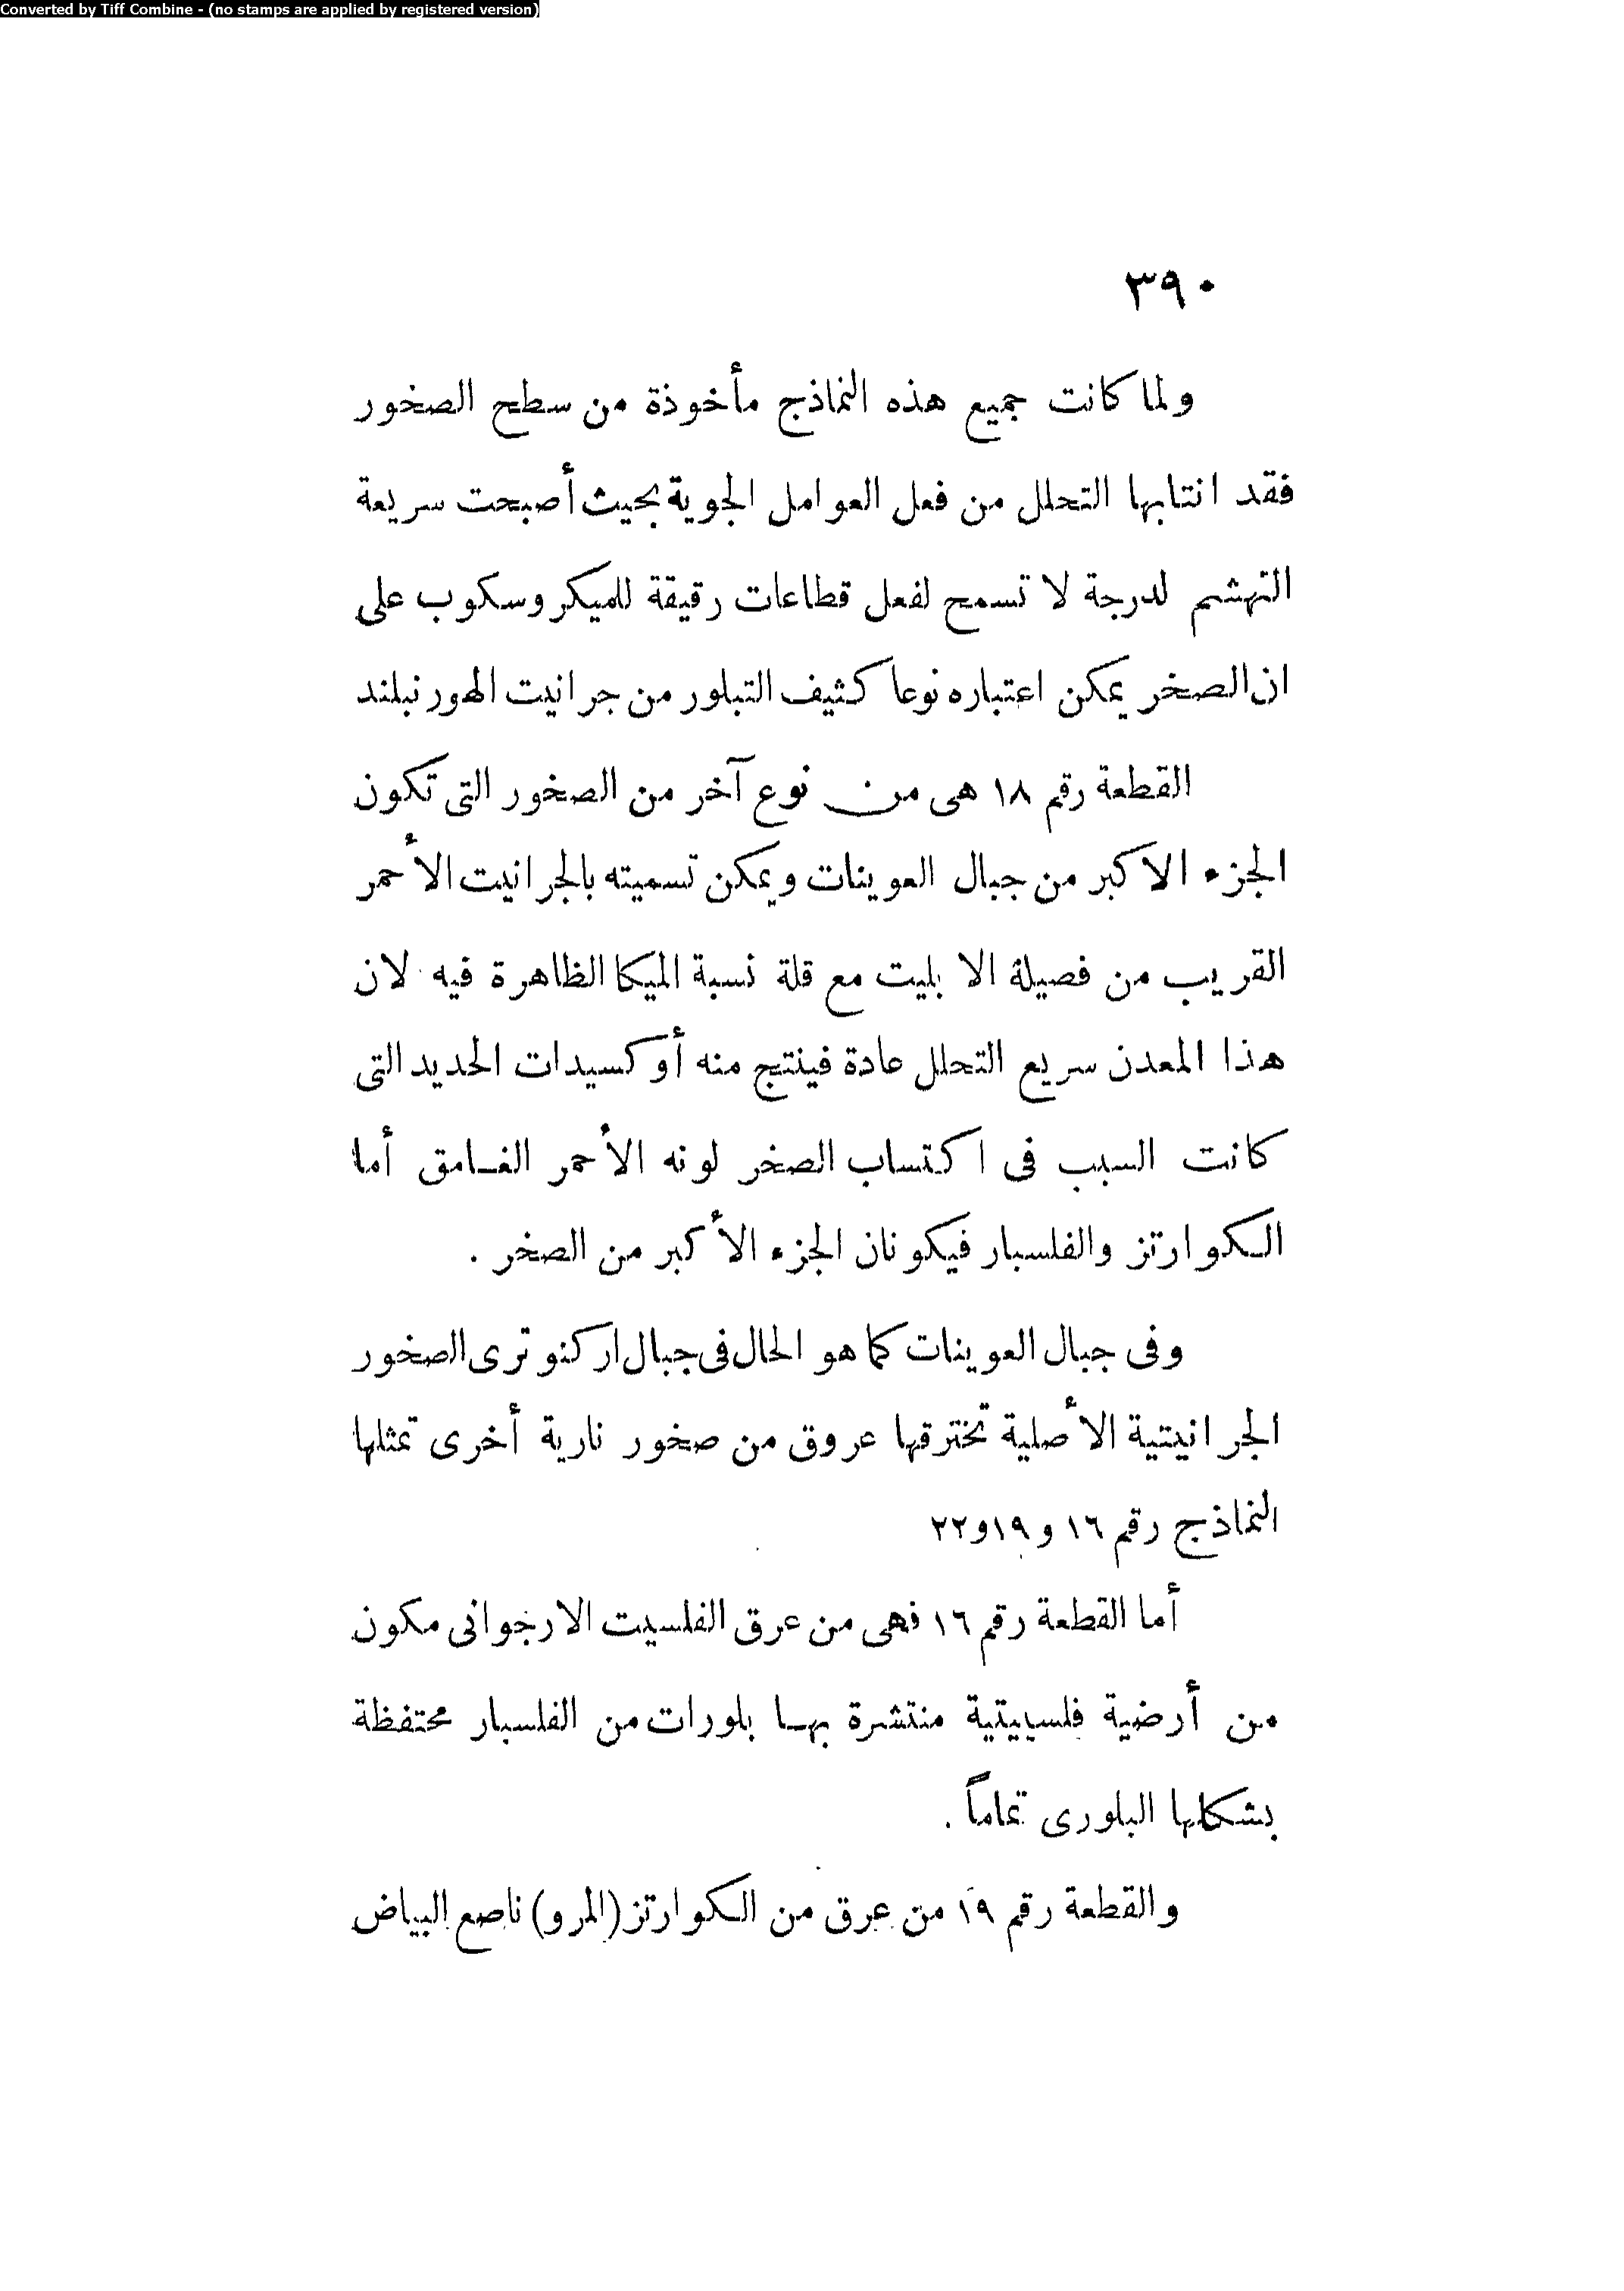 Converted by Tiff Combine - (no stamps are applied by registered version)
٣٩٠
ولما كانت جميع هذه النماذج مأخوذة من سطح الصخور
فقد انتابها التحلل من فعل العوامل الجوية بحيث أصبحت سريعة
التهشم لدرجة لا تسمح لفعل قطاعات رقيقة للميكروسكوب على
ان الصخر يمكن اعتباره نوعا كثيف التبلور من جرانيت الهورنبلند
القطعة رقم ١٨ هى من نوع آخر من الصخور التى تكون
الجزء الاكبر من جبال العوينات ويمكن تسميته بالجرانيت الأحمر
القريب من فصيلة الابليت مع قلة نسبة الميكا الظاهرة فيه لان
هذا المعدن سريع التحلل عادة فينتج منه أوكسيدات الحديد التى
كانت السبب فى اكتساب الصخر لونه الأحمر الغامق أما
الكوارتز والفلسبار فيكونان الجزء الأكبر من الصخر .
وفى جبال العوينات كما هو الحال فى جبال اركنو ترى الصخور
الجرانيتية الأصلية تخترقها عروق من صخور نارية أخرى تمثلها
النماذج رقم ١٦ و ١٩ و ٢٢
أما القطعة رقم ١٦ فهى من عرق الفلسيت الارجوانى مكون
من أرضية فلسيتية منتشرة بها بلورات من الفلسبار محتفظة
بشكلها البلورى تماماً .
والقطعة رقم ١٩ من عرق من الكوارتز (المرو) ناصع البياض